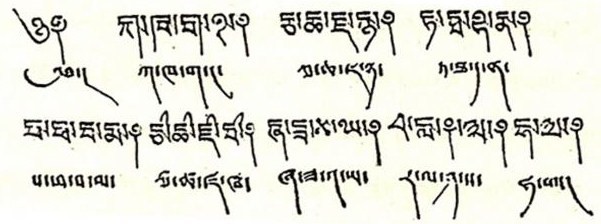 ༄༅། ཀ་ཁ་ག་ང་། ཅ་ཆ་ཇ་ཉ། ཏ་ཐ་ད་ན།
ཀ་ཁ་ག་ང། ཅ་ཆ་ཇ་ཉ། ཏ་ཐ་ད་ན།
པ་ཕ་བ་མ། ཙ་ཚ་ཛ་ཝ། ཞ་ཟ་འ་ཡ། ར་ལ་ཤ་ས། ཧ་ཨ།
པ་ཕ་བ་མ། ཙ་ཚ་ཛ་ཝ། ཞ་ཟ་འ་ཡ། ར་ལ་ཤ་ས། ཧ་ཨ།